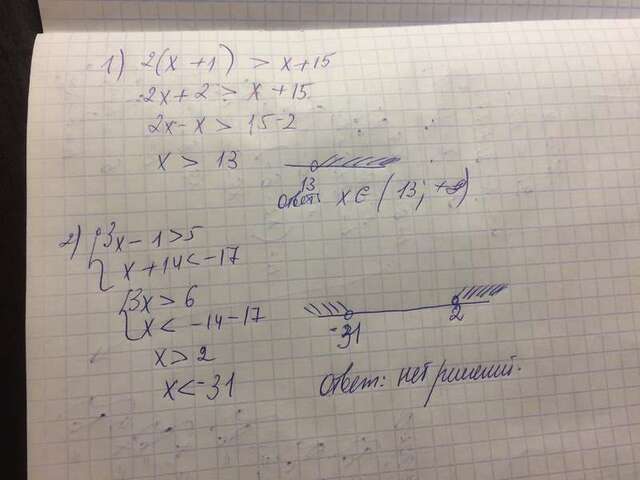 1) 2(x+1) > x+15
2x+2 > x+15
2x-x > 15-2
x > 13
13
Ответ: x∈(13; +∞)
2) {3x-1>5
x+14<-17
{3x>6
x<-14-17
x>2
x<-31
-31 2
Ответ: нет решений.